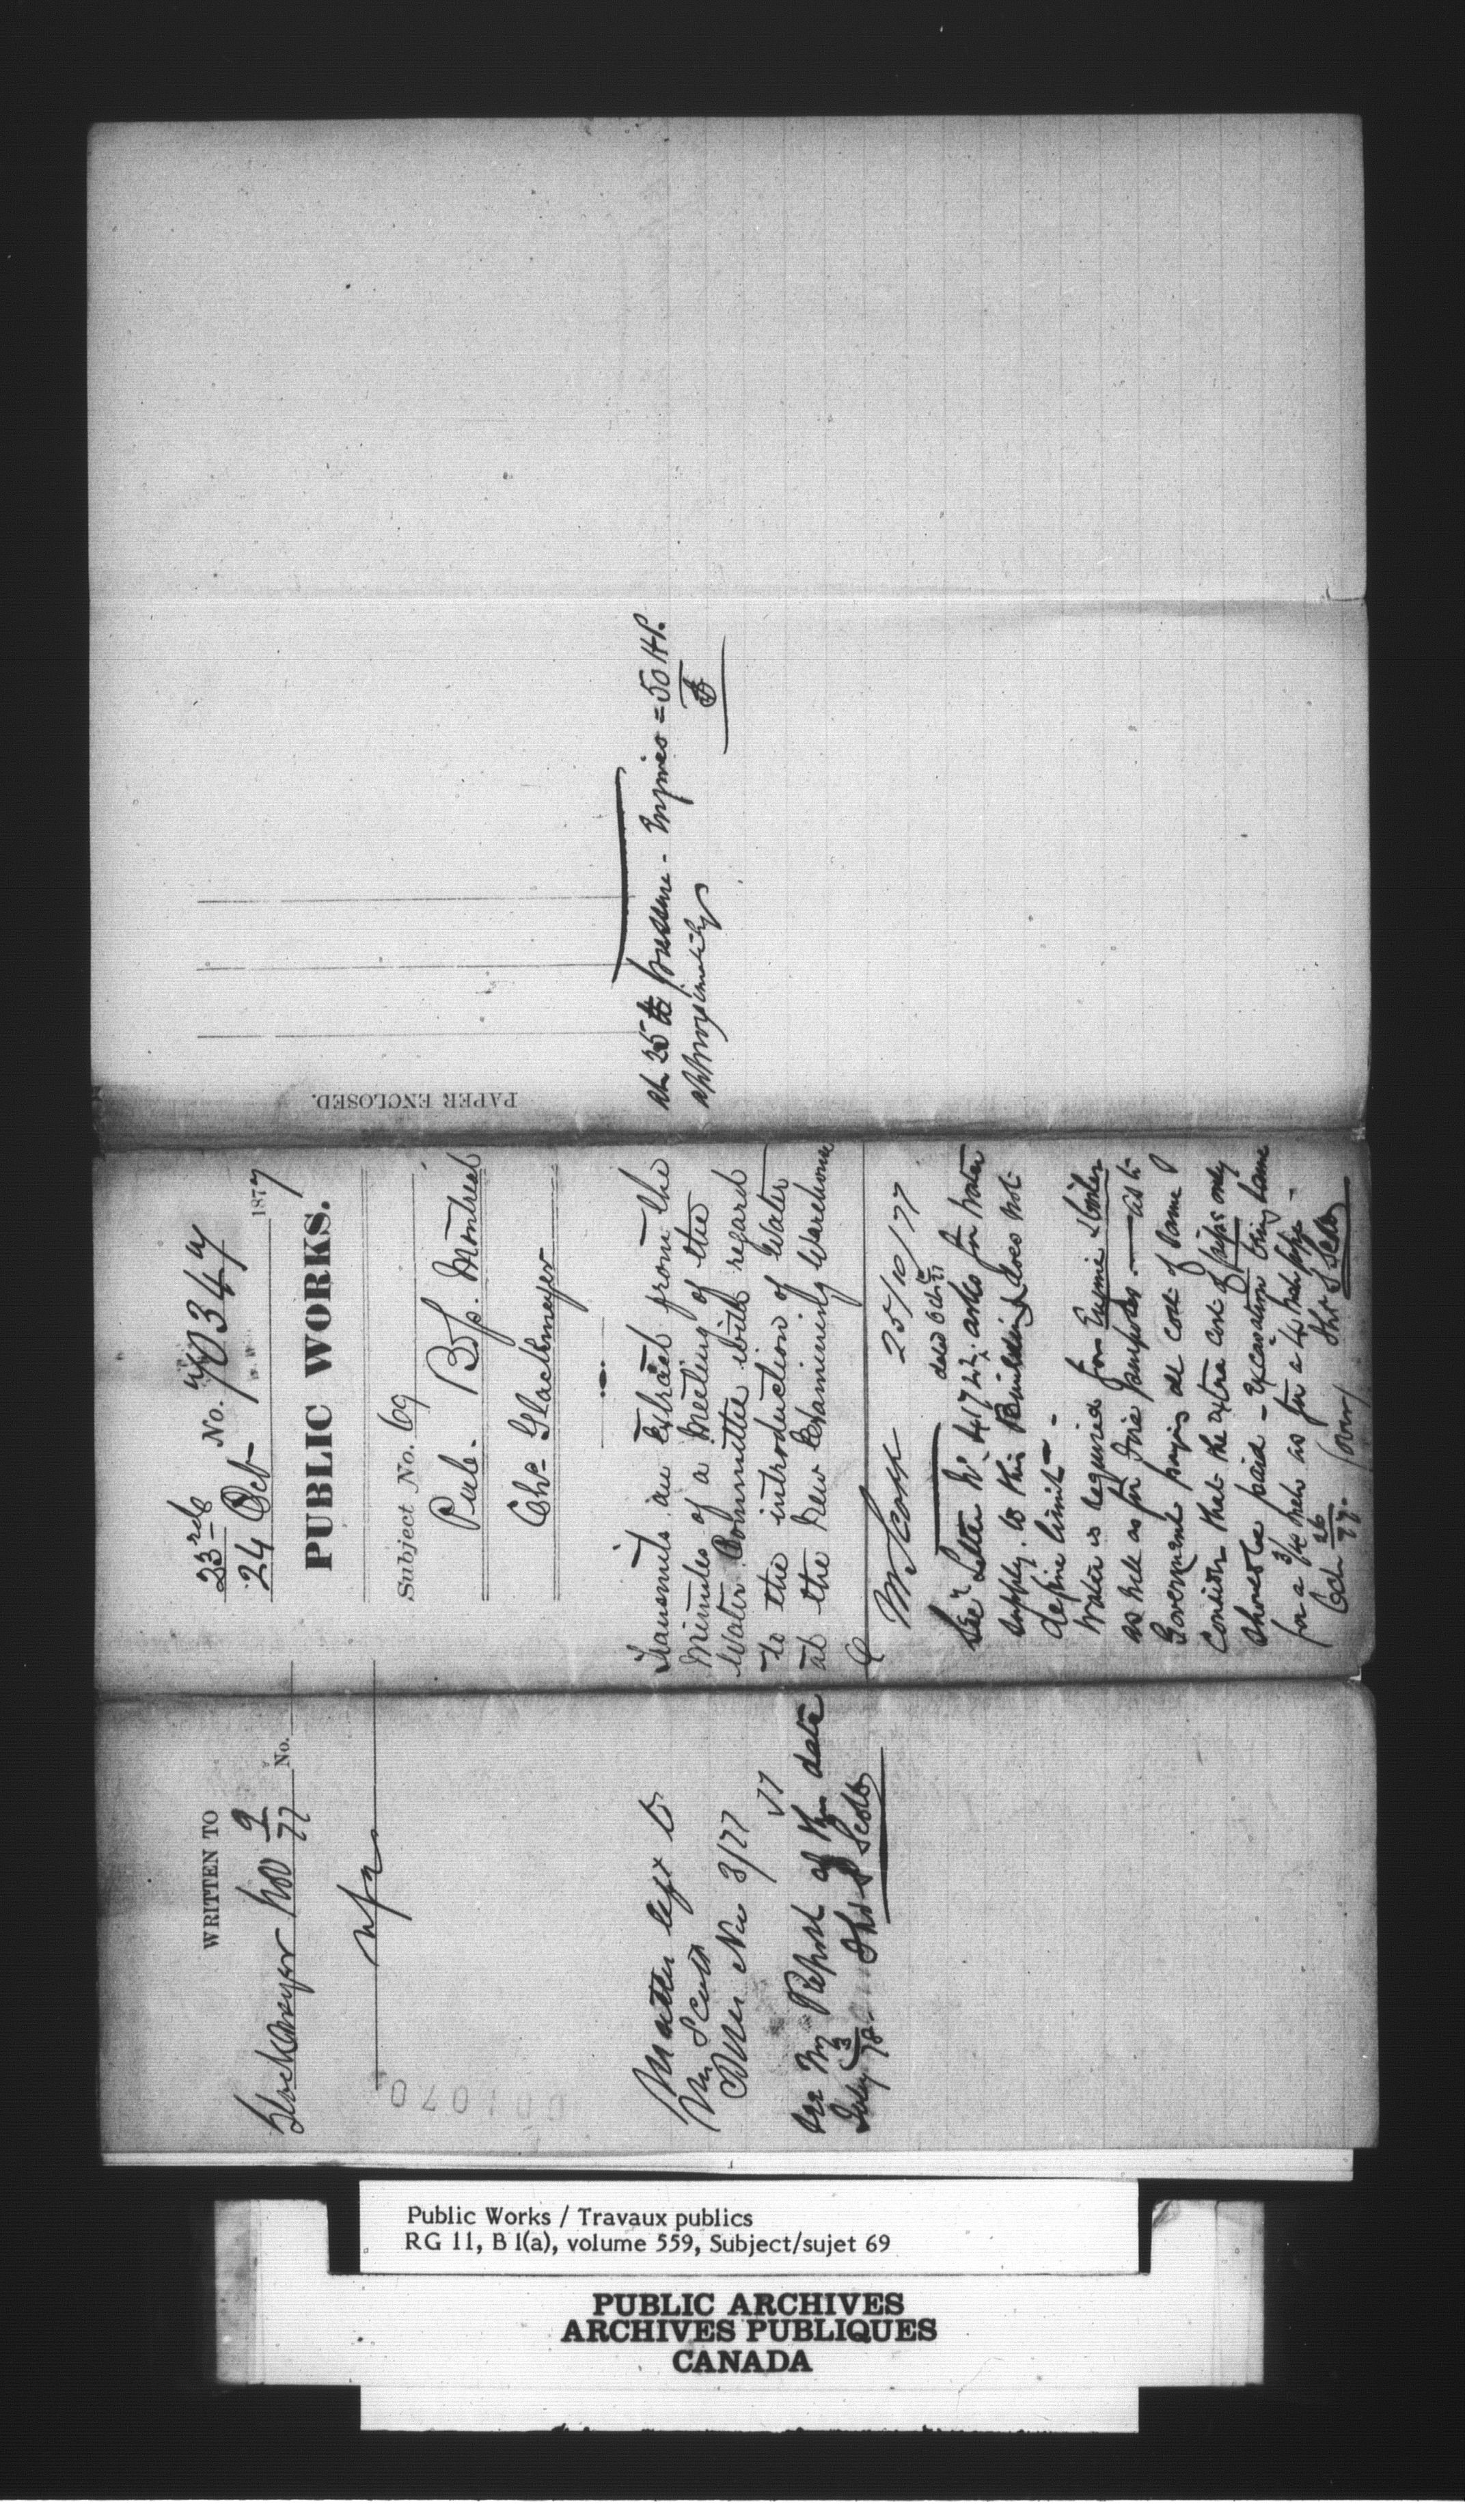 WRITTEN TO
Glackmeyer Nov 9/77 No.
nfa
Matter left to
Mr Scott
Nov 3/77
See My Report of this date
July 3/78 Thos S Scott
001070
23rd No. 70347
24 Oct 1877
PUBLIC WORKS.
Subject No. 69
Pub. Bgs. Montreal
Chs. Glackmeyer
Transmits an extract from the
Minutes of a Meeting of the
Water Committee with regard
to the introduction of Water
at the New Examining Warehouse
Mr Scott 25/10/77
dated 6 Oct 77
See Letter No. 41722. asks for Water
supply. to this Building & does not
define limit -
Water is required for Engine & boiler
as well as for fire purposes. — as to
Government paying all cost of same I
consider that the extra cost of pipe only
should be paid - excavation being same
for a 3/4 inch as for a 4 inch pipe -
Oct 26/77. (Over) Thos S Scott
PAPER ENCLOSED.
At 25 lb pressure - Engines = 50 H.P.
approximately
Public Works / Travaux publics
RG 11, B 1(a), volume 559, Subject/sujet 69
PUBLIC ARCHIVES
ARCHIVES PUBLIQUES
CANADA